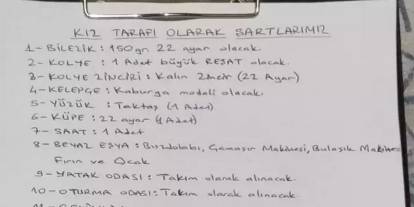 KIZ TARAFI OLARAK ŞARTLARIMIZ
1- BİLEZİK : 150 gr 22 ayar olacak.
2- KOLYE : 1 Adet büyük REŞAT olacak.
3- KOLYE ZİNCİRİ : Kalın Zincir (22 Ayar)
4- KELEPÇE : Kaburga modeli olacak.
5- YÜZÜK : Tektaş (1 Adet)
6- KÜPE : 22 ayar (1 Adet)
7- SAAT : 1 Adet
8- BEYAZ EŞYA : Buzdolabı, Çamaşır Makinesi, Bulaşık Makinesi
Fırın ve Ocak
9- YATAK ODASI : Takım olarak alınacak.
10- OTURMA ODASI : Takım olarak alınacak.